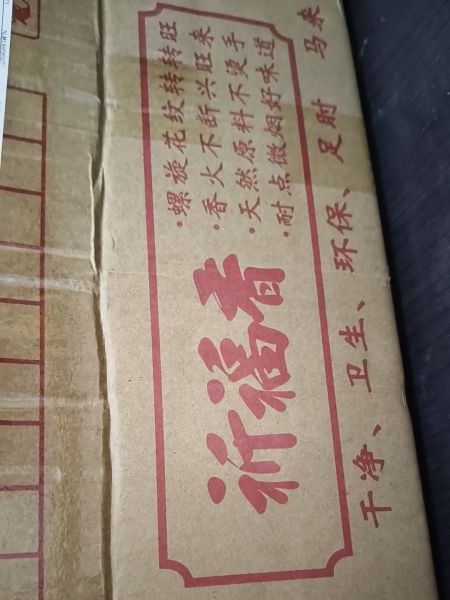 祈福香
·螺旋花纹转转旺
·香火不断兴旺来
·天然原料不烫手
·耐点微烟好味道
干净、卫生、环保、足时 马来